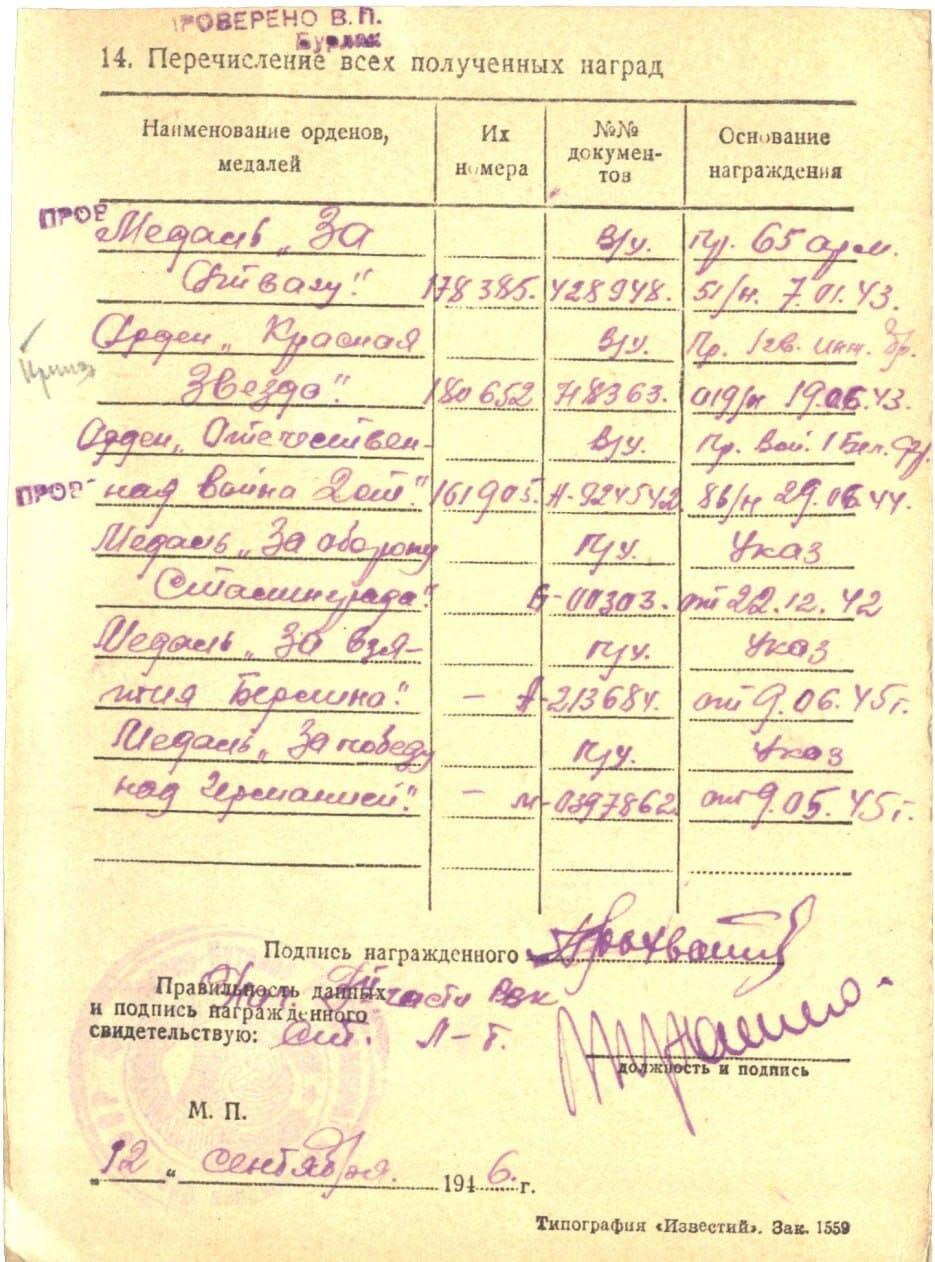 ПРОВЕРЕНО В. П.
Бурлак
14. Перечисление всех полученных наград
Наименование орденов, медалей
Их номера
№№ докумен-тов
Основание награждения
ПРОВ
Медаль „За в/у. Пр. 65 арм.
Отвагу". 178385. 428948. 51/н. 7.01.43.
Орден „Красная в/у. Пр. 1 гв. инж. бр.
Звезда". 180652 718363. 019/н 19.06.43.
Орден „Отечествен- в/у. Пр. Вой. 1 Бел. фр.
ПРОВ
ная война 2 ст". 161905. А-924542 86/н 29.06.44.
Медаль „За оборону п/у. Указ
Сталинграда". Б-00303. от 22.12.42
Медаль „За взя- п/у. Указ
тия Берлина". – А-213684. от 9.06.45г.
Медаль „За победу п/у. Указ
над Германией". – М-0397862 от 9.05.45г.
Подпись награжденного
Правильность данных
и подпись награжденного
свидетельствую:
Нач. части РВК
ст. Л-т.
должность и подпись
М. П.
„12" сентября. 1946. г.
Типография «Известий». Зак. 1559